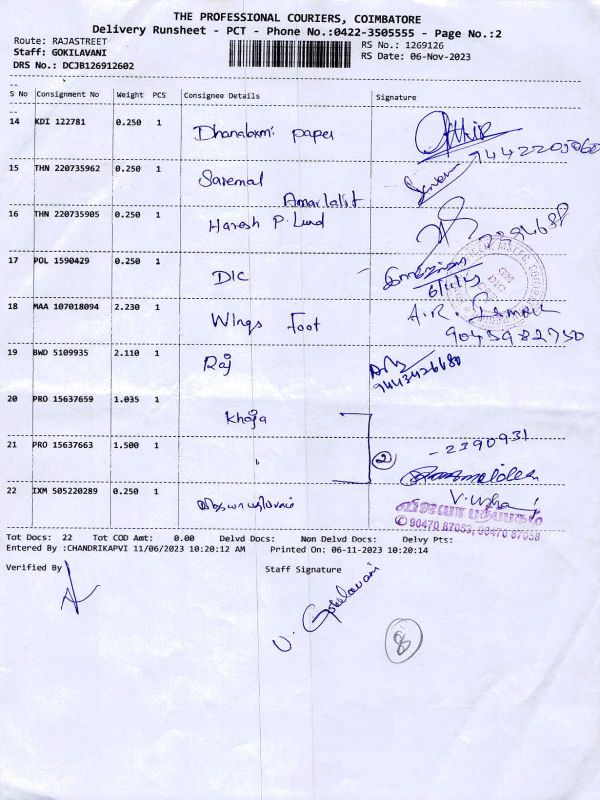 THE PROFESSIONAL COURIERS, COIMBATORE
Delivery Runsheet - PCT - Phone No.:0422-3505555 - Page No.:2
Route: RAJASTREET
RS No.: 1269126
Staff: GOKILAVANI
RS Date: 06-Nov-2023
DRS No.: DCJB126912602
S No Consignment No Weight PCS Consignee Details Signature
14 KDI 122781 0.250 1 paper
9442205060
15 THN 220735962 0.250 1 Saremal
Amarlalit
16 THN 220735905 0.250 1 Haresh P. Lund
17 POL 1590429 0.250 1 DIC
6/11/23
18 MAA 107018094 2.230 1 Wings Foot A.R.
9045982750
19 BWD 5109935 2.110 1 Raj
9443426680
20 PRO 15637659 1.035 1 Khoja
21 PRO 15637663 1.500 1 " 2 - 2390931
22 IXM 505220289 0.250 1 விஜயா பதிப்பகம் V. Usha
விஜயா பதிப்பகம்
✆ 90470 87053, 90470 87058
Tot Docs: 22 Tot COD Amt: 0.00 Delvd Docs: Non Delvd Docs: Delvy Pts:
Entered By :CHANDRIKAPVI 11/06/2023 10:20:12 AM Printed On: 06-11-2023 10:20:14
Verified By
Staff Signature
V. Gokilavani
8